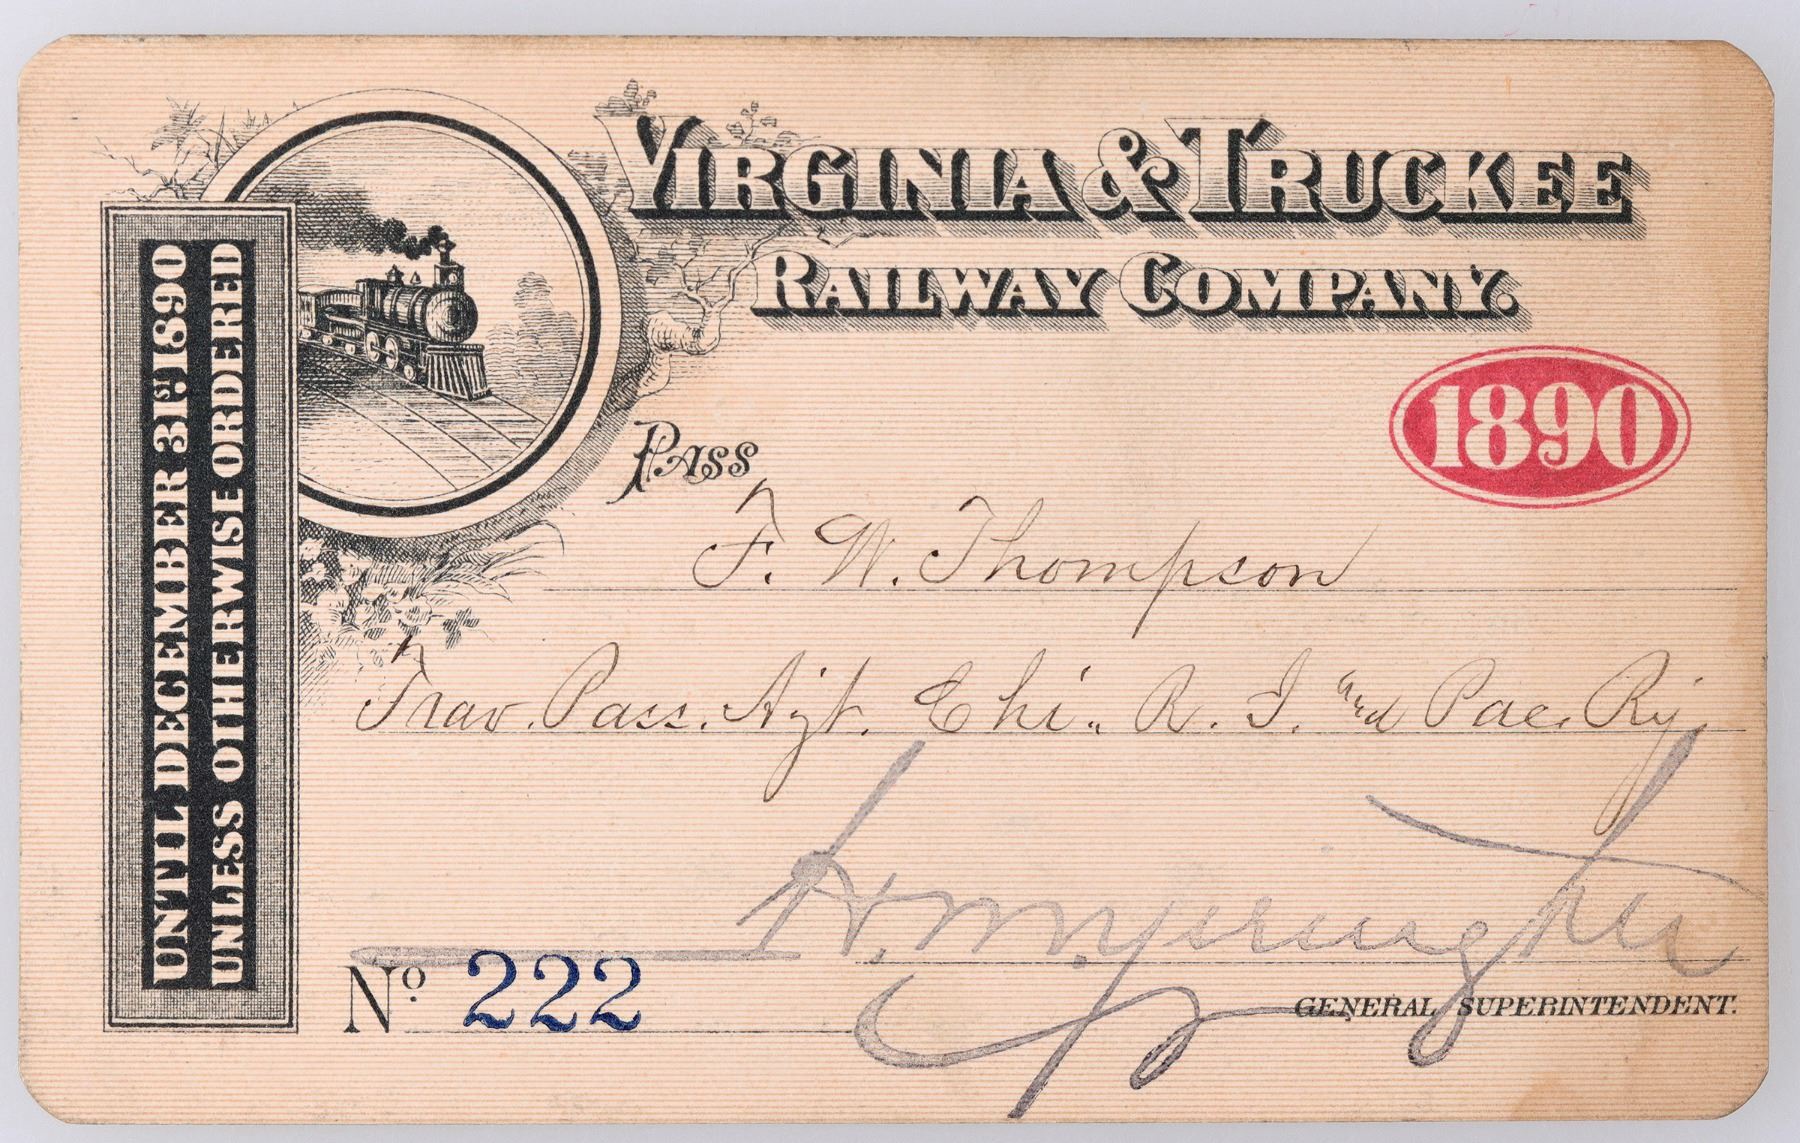 VIRGINIA & TRUCKEE
RAILWAY COMPANY.
1890
UNTIL DECEMBER 31st 1890
UNLESS OTHERWISE ORDERED
PASS
F. W. Thompson
Trav. Pass. Agt. Chi. R. I. and Pac. Ry.
H. M. Yerington
GENERAL SUPERINTENDENT.
No. 222